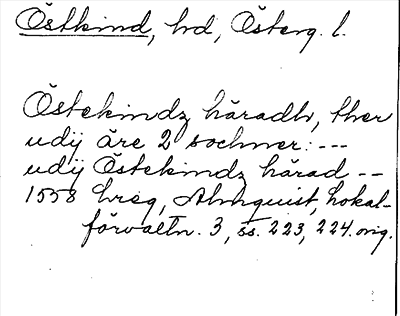 Östkind, hd, Österg. l.
Östekindz häradh, ther
udij äre 2 sochner: ---
udij Östekindz härad --
1558 hreg, Almquist, Lokal-
förvaltn. 3, ss. 223, 224. orig.